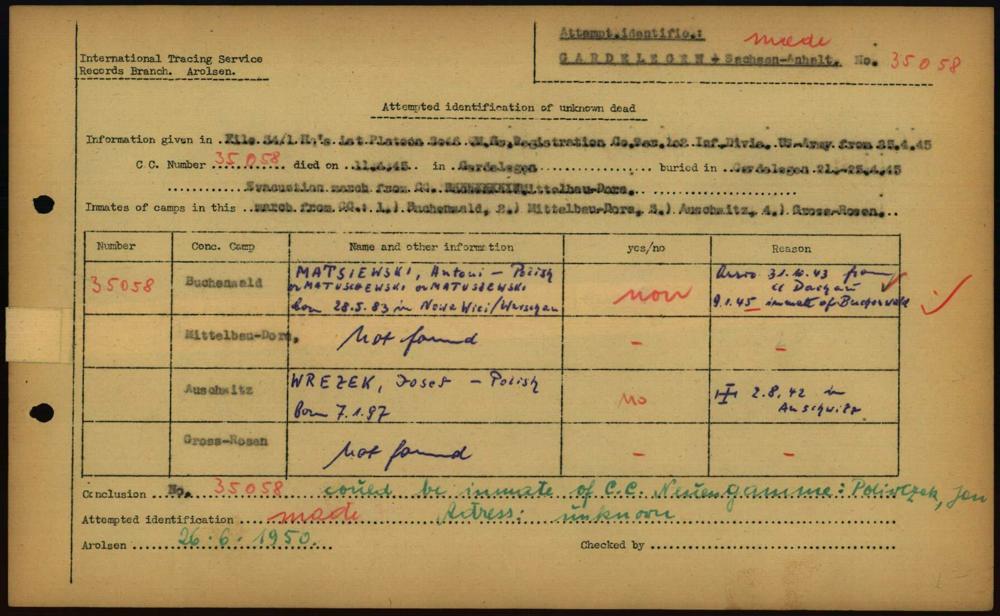 Attempt.identific.: made
GARDELEGEN + Sachsen-Anhalt. No. 35058
International Tracing Service
Records Branch. Arolsen.
Attempted identification of unknown dead
Information given in File 54/1 Hq's 1st Platoon Registration US-Army from 25.4.45
C.C. Number 35058 died on 11.4.45 in Gardelegen buried in Gardelegen 21.-25.4.45
Evacuation march from CC. Mittelbau-Dora.
Inmates of camps in this march from CC.: 1.) Buchenwald, 2.) Mittelbau-Dora, 3.) Auschwitz, 4.) Gross-Rosen.
Number Conc. Camp Name and other information yes/no Reason
35058 Buchenwald MATSIEWSKI, Antoni - Polish
or MATUSCHEWSKI or MATUSZEWSKI
born 28.5.83 in Nowa Wici/Warschau
non
31.10.43 from
CC Dachau
9.1.45 inmate of Buchenwald
Mittelbau-Dora, Not found - -
Auschwitz WREZEK, Josef - Polish
born 7.1.97
no
2.8.42 in
Auschwitz
Gross-Rosen Not found - -
Conclusion No. 35058 could be inmate of C.C. Neuengamme: Poliwczek, Jan
Attempted identification made Adress: unknown
Arolsen 26.6.1950. Checked by